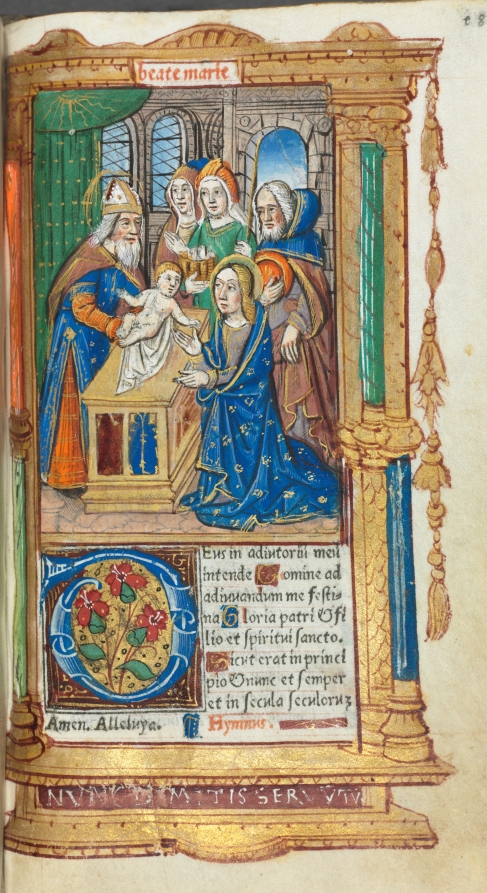 beate marie
Deus in adiutoriū meū
intende Domine ad
adiuuandum me festi-
na Gloria patri & fi
lio et spiritui sancto.
Sicut erat in princi
pio & nunc et semper
et in secula seculorūꝫ
Amen. Alleluya. Hymnus.
NVNC DIMITIS SERVVTV